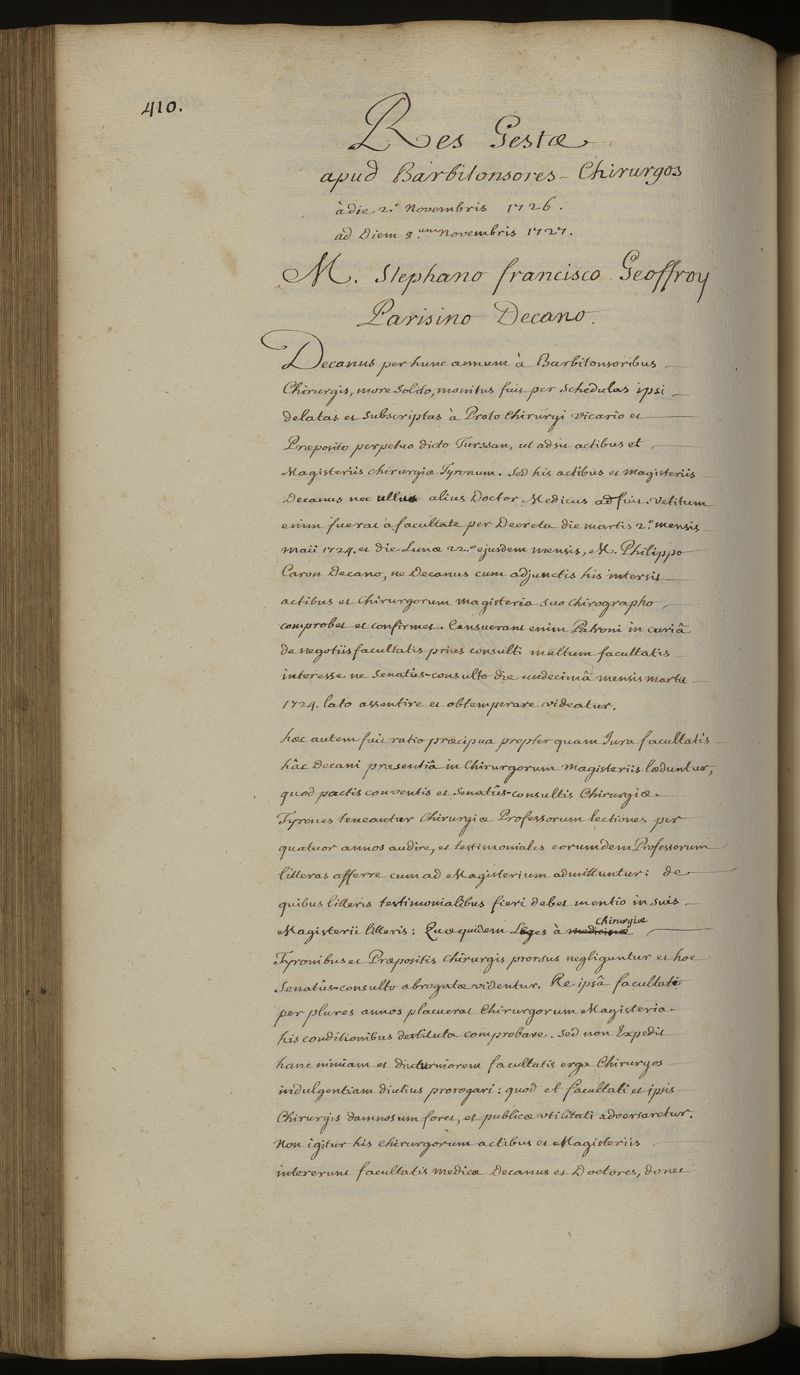 410.
Res Gestæ
apud Barbitonsores-Chirurgos
à die 2.ª Novembris 1726.
ad Diem 8.um Novembris 1727.
M. Stephano francisco Geoffroy
Parisino Decano.
Decanus per hunc annum à Barbitonsoribus
Chirurgis, more Solito, monitus fuit per Schedulas ipsi
delatas et Subscriptas à Proto Chirurgi vicario et
Præposito perpetuo dicto Turssan, ut adsit actibus et
Magisteriis chirurgiæ Tyronum. Sed his actibus et magisteriis
Decanus nec ullus alius Doctor Medicus adfuit. Vetitum
enim fuerat a facultate per Decreta die martis 2.ª mensis
maii 1724. et die Lunæ 22.ª ejusdem mensis, M. Philippo
Caron Decano, ne Decanus cum adjunctis his intersit
actibus et Chirurgorum magisteria suo chirographo
comprobet et confirmet. Censuerant enim Patroni in curiâ
de negotiis facultatis prius consulti multum facultatis
interesse ne Senatûs-consulto die undecimâ mensis martii
1724. lato assentire et obtemperare videatur.
hæc autem fuit ratio præcipua propter quam Jura facultatis
hâc Decani præsentiâ in Chirurgorum magisteriis læduntur,
quod pactis conventis et Senatûs-consultis Chirurgiæ
Tyrones teneantur Chirurgiæ Professorum lectiones per
quatuor annos audire, et testimoniales eorumdem Professorum
litteras afferre cum ad Magisterium admittuntur: de
quibus litteris testimonialibus fieri debet mentio in suis
Magisterii litteris: Quæ quidem Leges à medicinæ chirurgiæ
Tyronibus et Præpositis Chirurgis prorsus negliguntur et hoc
Senatûs-consulto abrogatæ videntur. Re ipsâ facultati
per plures annos placuerat Chirurgorum Magisteria
his conditionibus destituta comprobare. Sed non Expedit
hanc nimiam et diuturniorem facultatis erga Chirurgos
indulgentiam diutius prorogari: quod et facultati et ipsis
Chirurgis damnosum foret, et publicæ utilitati adversaretur.
Non igitur his chirurgorum actibus et Magisteriis
intererunt facultatis medicæ Decanus et Doctores, donec